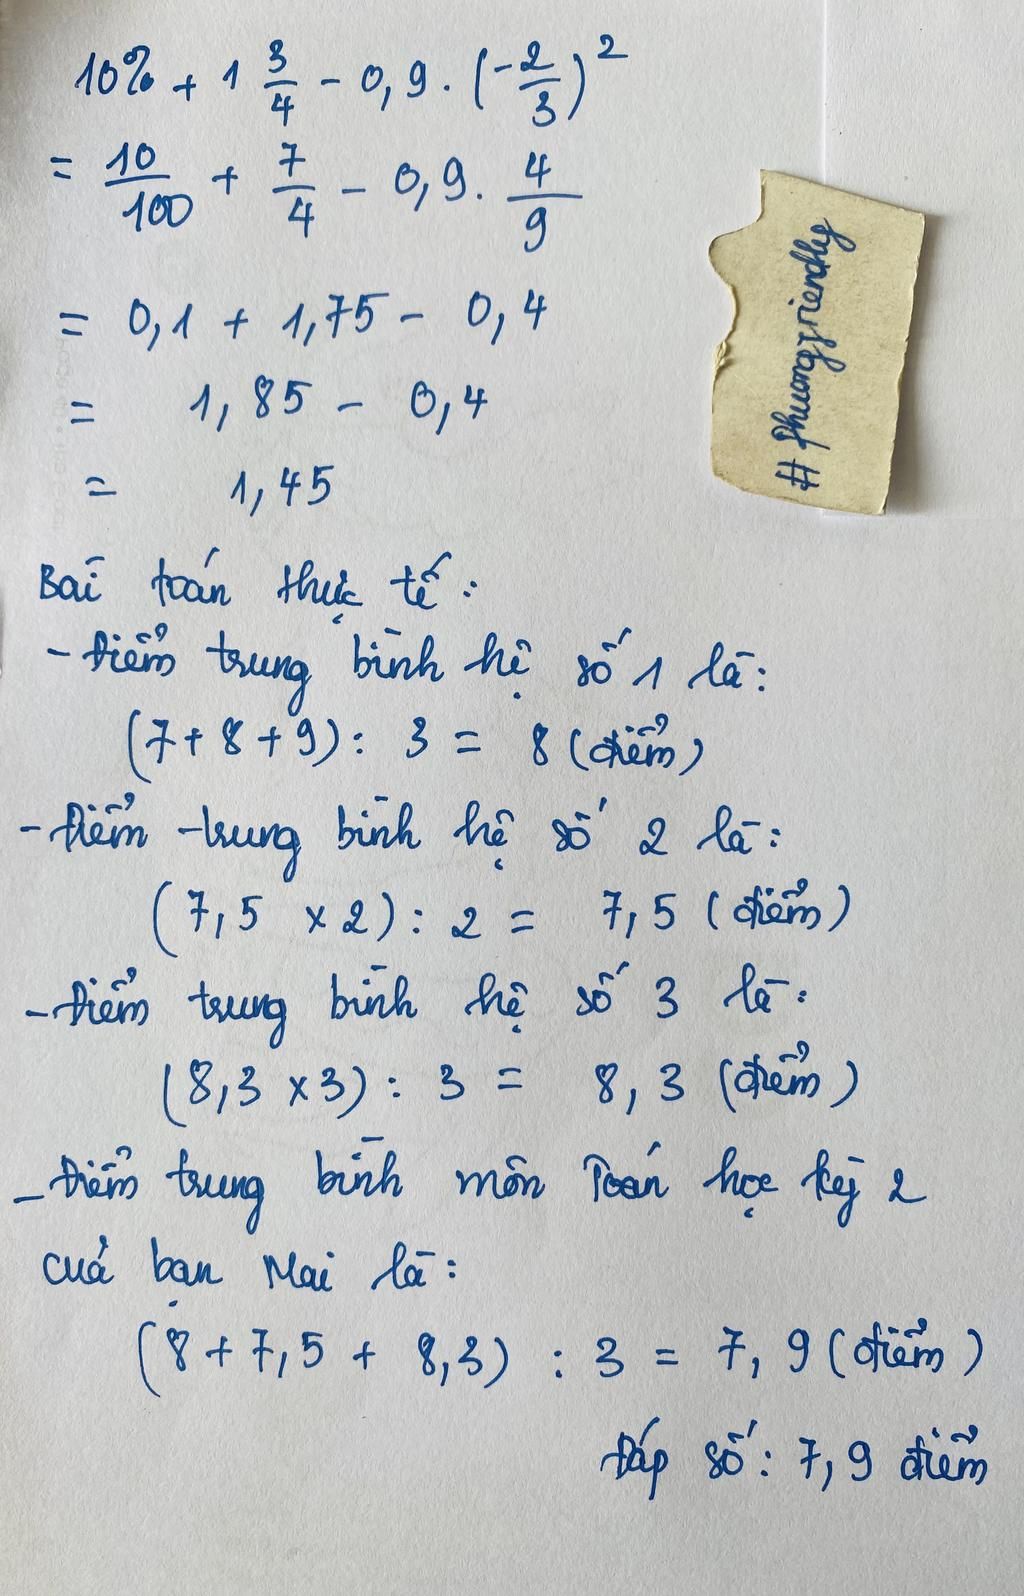 10% + 1 3/4 - 0,9 . (-2/3)²
= 10/100 + 7/4 - 0,9 . 4/9
= 0,1 + 1,75 - 0,4
= 1,85 - 0,4
= 1,45
# phuongfriendly
Bài toán thực tế :
- Điểm trung bình hệ số 1 là :
(7 + 8 + 9) : 3 = 8 (điểm)
- Điểm trung bình hệ số 2 là :
(7,5 x 2) : 2 = 7,5 (điểm)
- Điểm trung bình hệ số 3 là :
(8,3 x 3) : 3 = 8,3 (điểm)
- Điểm trung bình môn Toán học kỳ 2
của bạn Mai là :
(8 + 7,5 + 8,3) : 3 = 7,9 (điểm)
Đáp số : 7,9 điểm